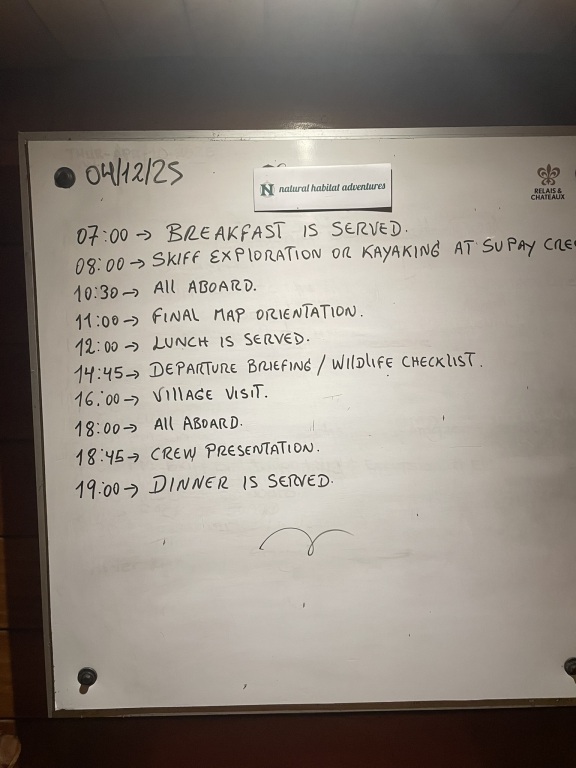 04/12/25
N natural habitat adventures
RELAIS &
CHATEAUX
07:00 → BREAKFAST IS SERVED.
08:00 → SKIFF EXPLORATION OR KAYAKING AT SUPAY
10:30 → All ABOARD.
11:00 → FINAL MAP ORIENTATION.
12:00 → LUNCH IS SERVED.
14:45 → DEPARTURE BRIEFING / WILDLIFE CHECKLIST.
16:00 → VILLAGE VISIT.
18:00 → All ABOARD.
18:45 → CREW PRESENTATION.
19:00 → DINNER IS SERVED.